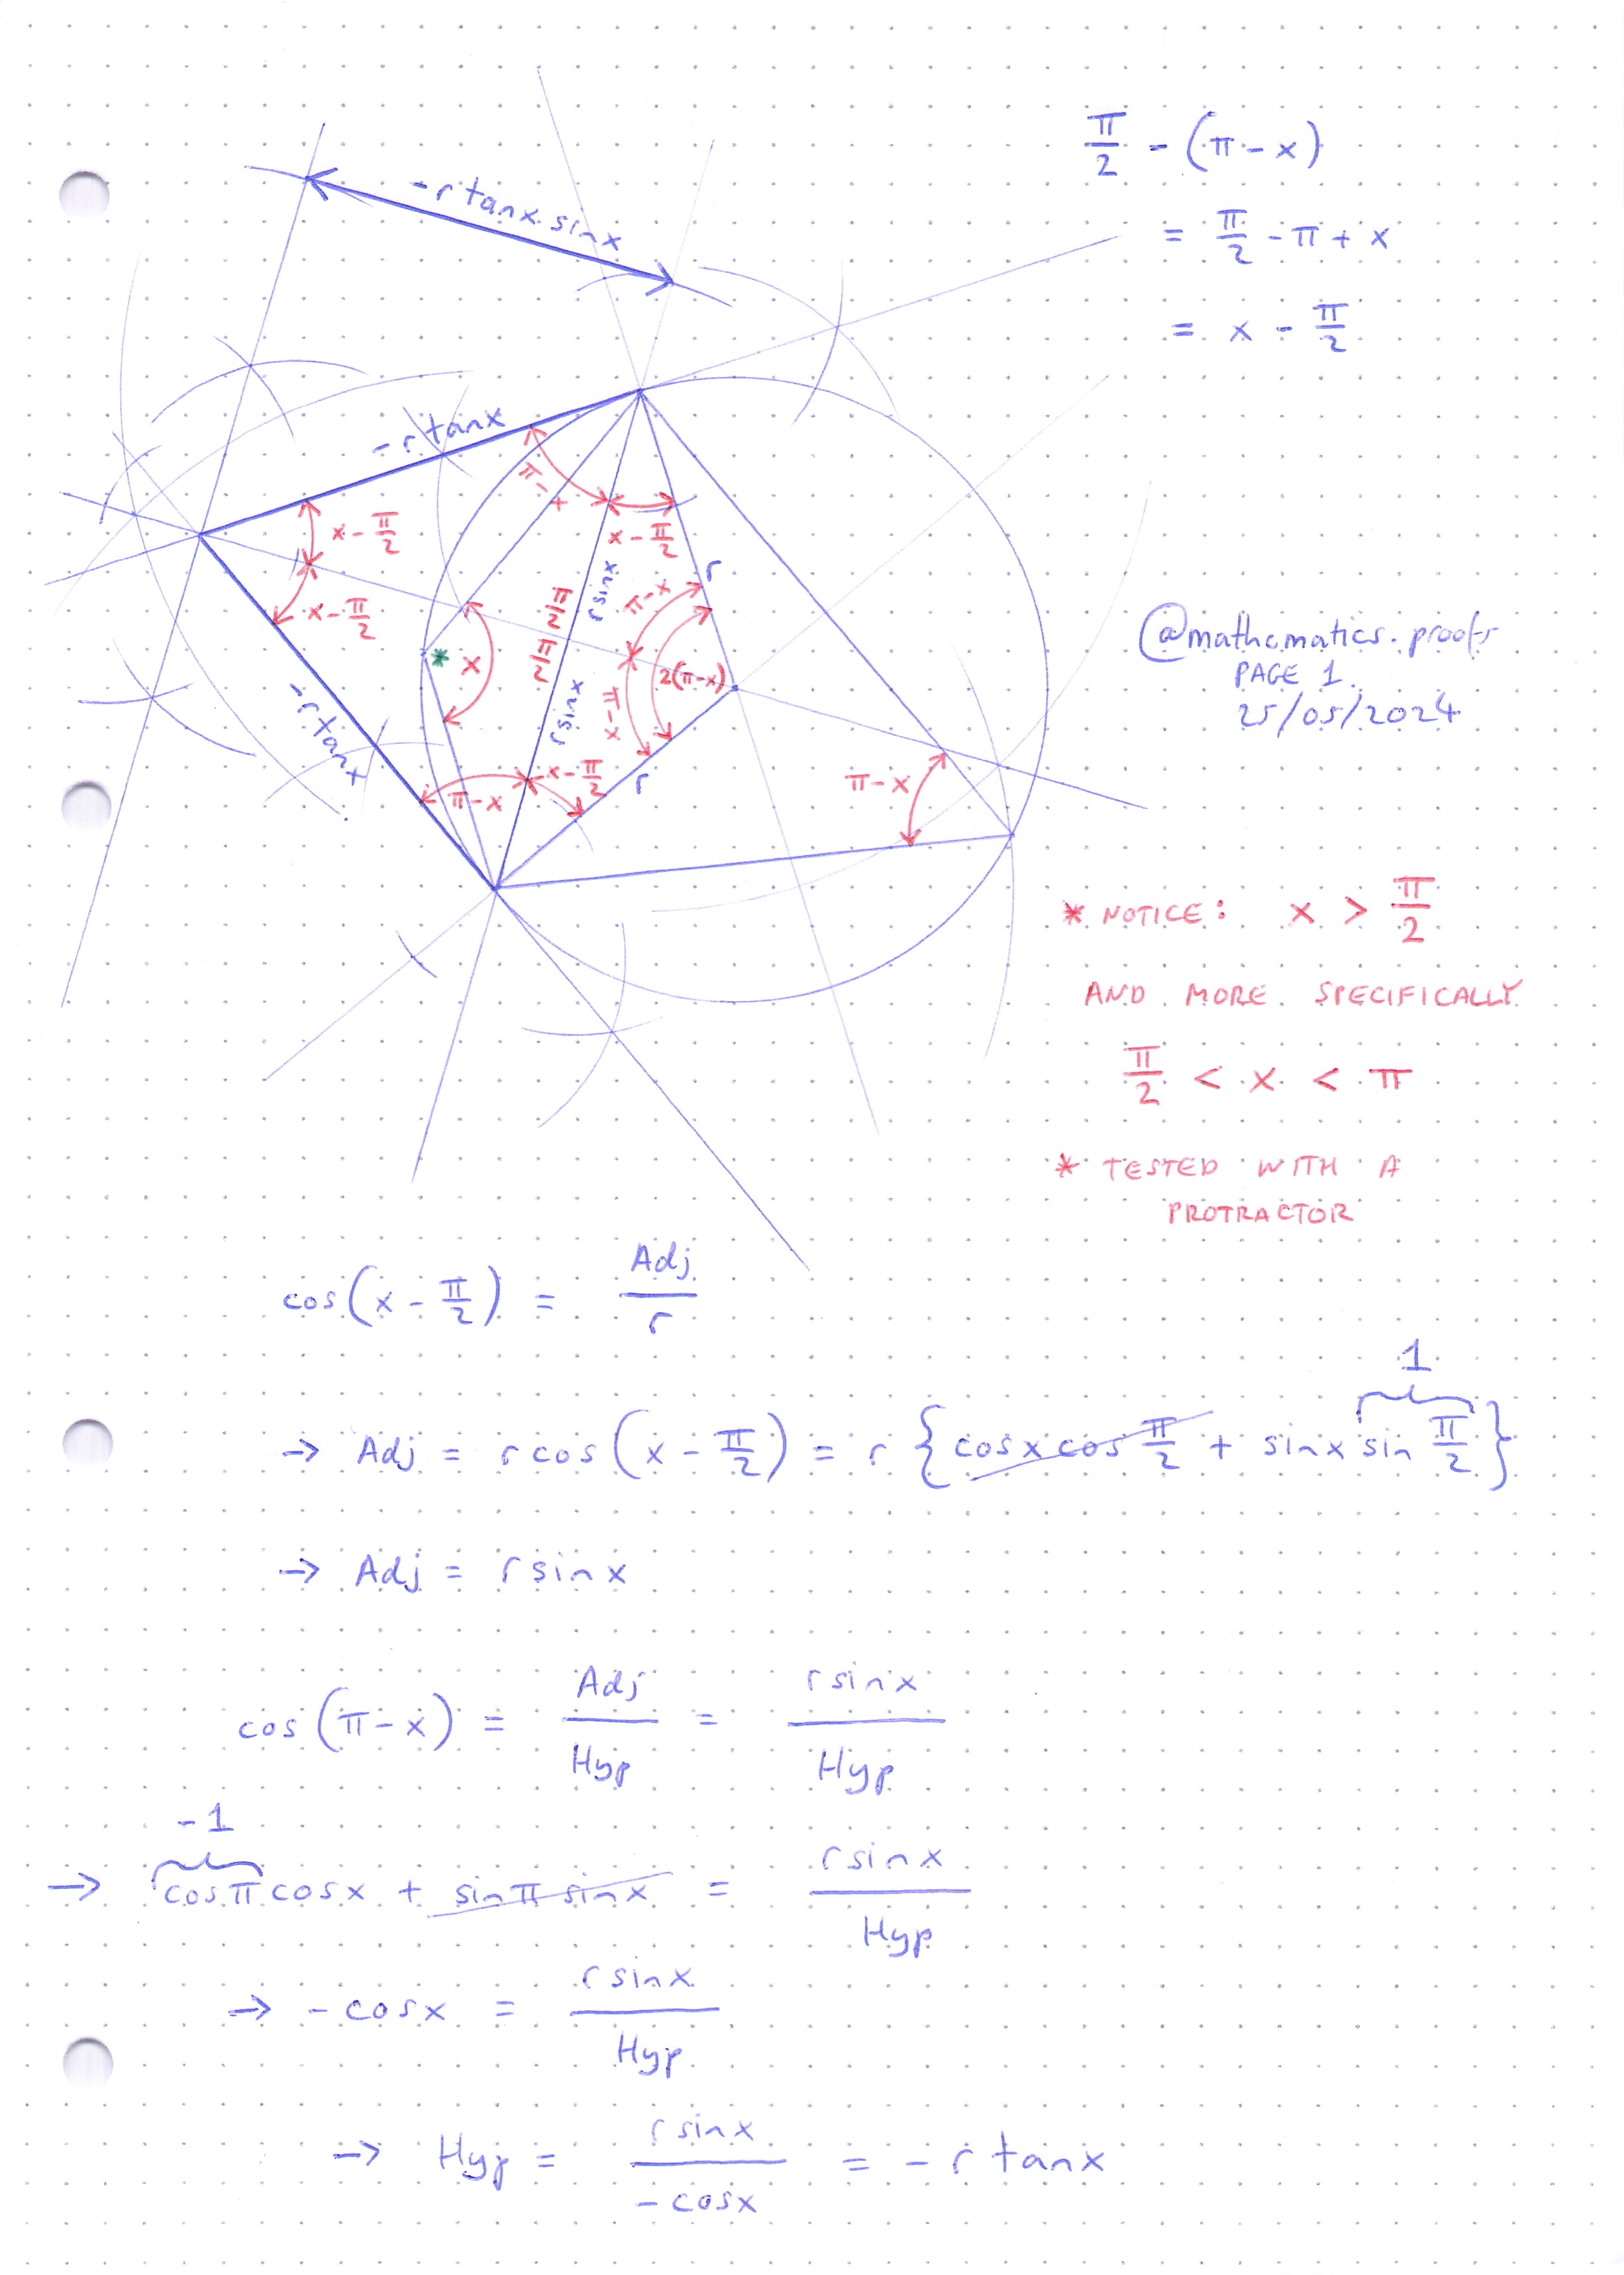 π/2 - (π - x)
= π/2 - π + x
= x - π/2
-r tanx sinx
-r tanx
π - x
x - π/2
x - π/2
x - π/2
r sinx
r
π - x
π/2
π/2
* x
2(π-x)
π - x
r sinx
-r tanx
π - x
x - π/2
r
π - x
@mathematics.proofs
PAGE 1
25/05/2024
* NOTICE: x > π/2
AND MORE SPECIFICALLY
π/2 < x < π
* TESTED WITH A
PROTRACTOR
cos(x - π/2) = Adj/r
→ Adj = r cos(x - π/2) = r {cosx cos π/2 + sinx sin π/2} 1
→ Adj = r sinx
cos(π - x) = Adj/Hyp = r sinx/Hyp
-1
→ cosπ cosx + sinπ sinx = r sinx/Hyp
→ -cosx = r sinx/Hyp
→ Hyp = r sinx/-cosx = -r tanx